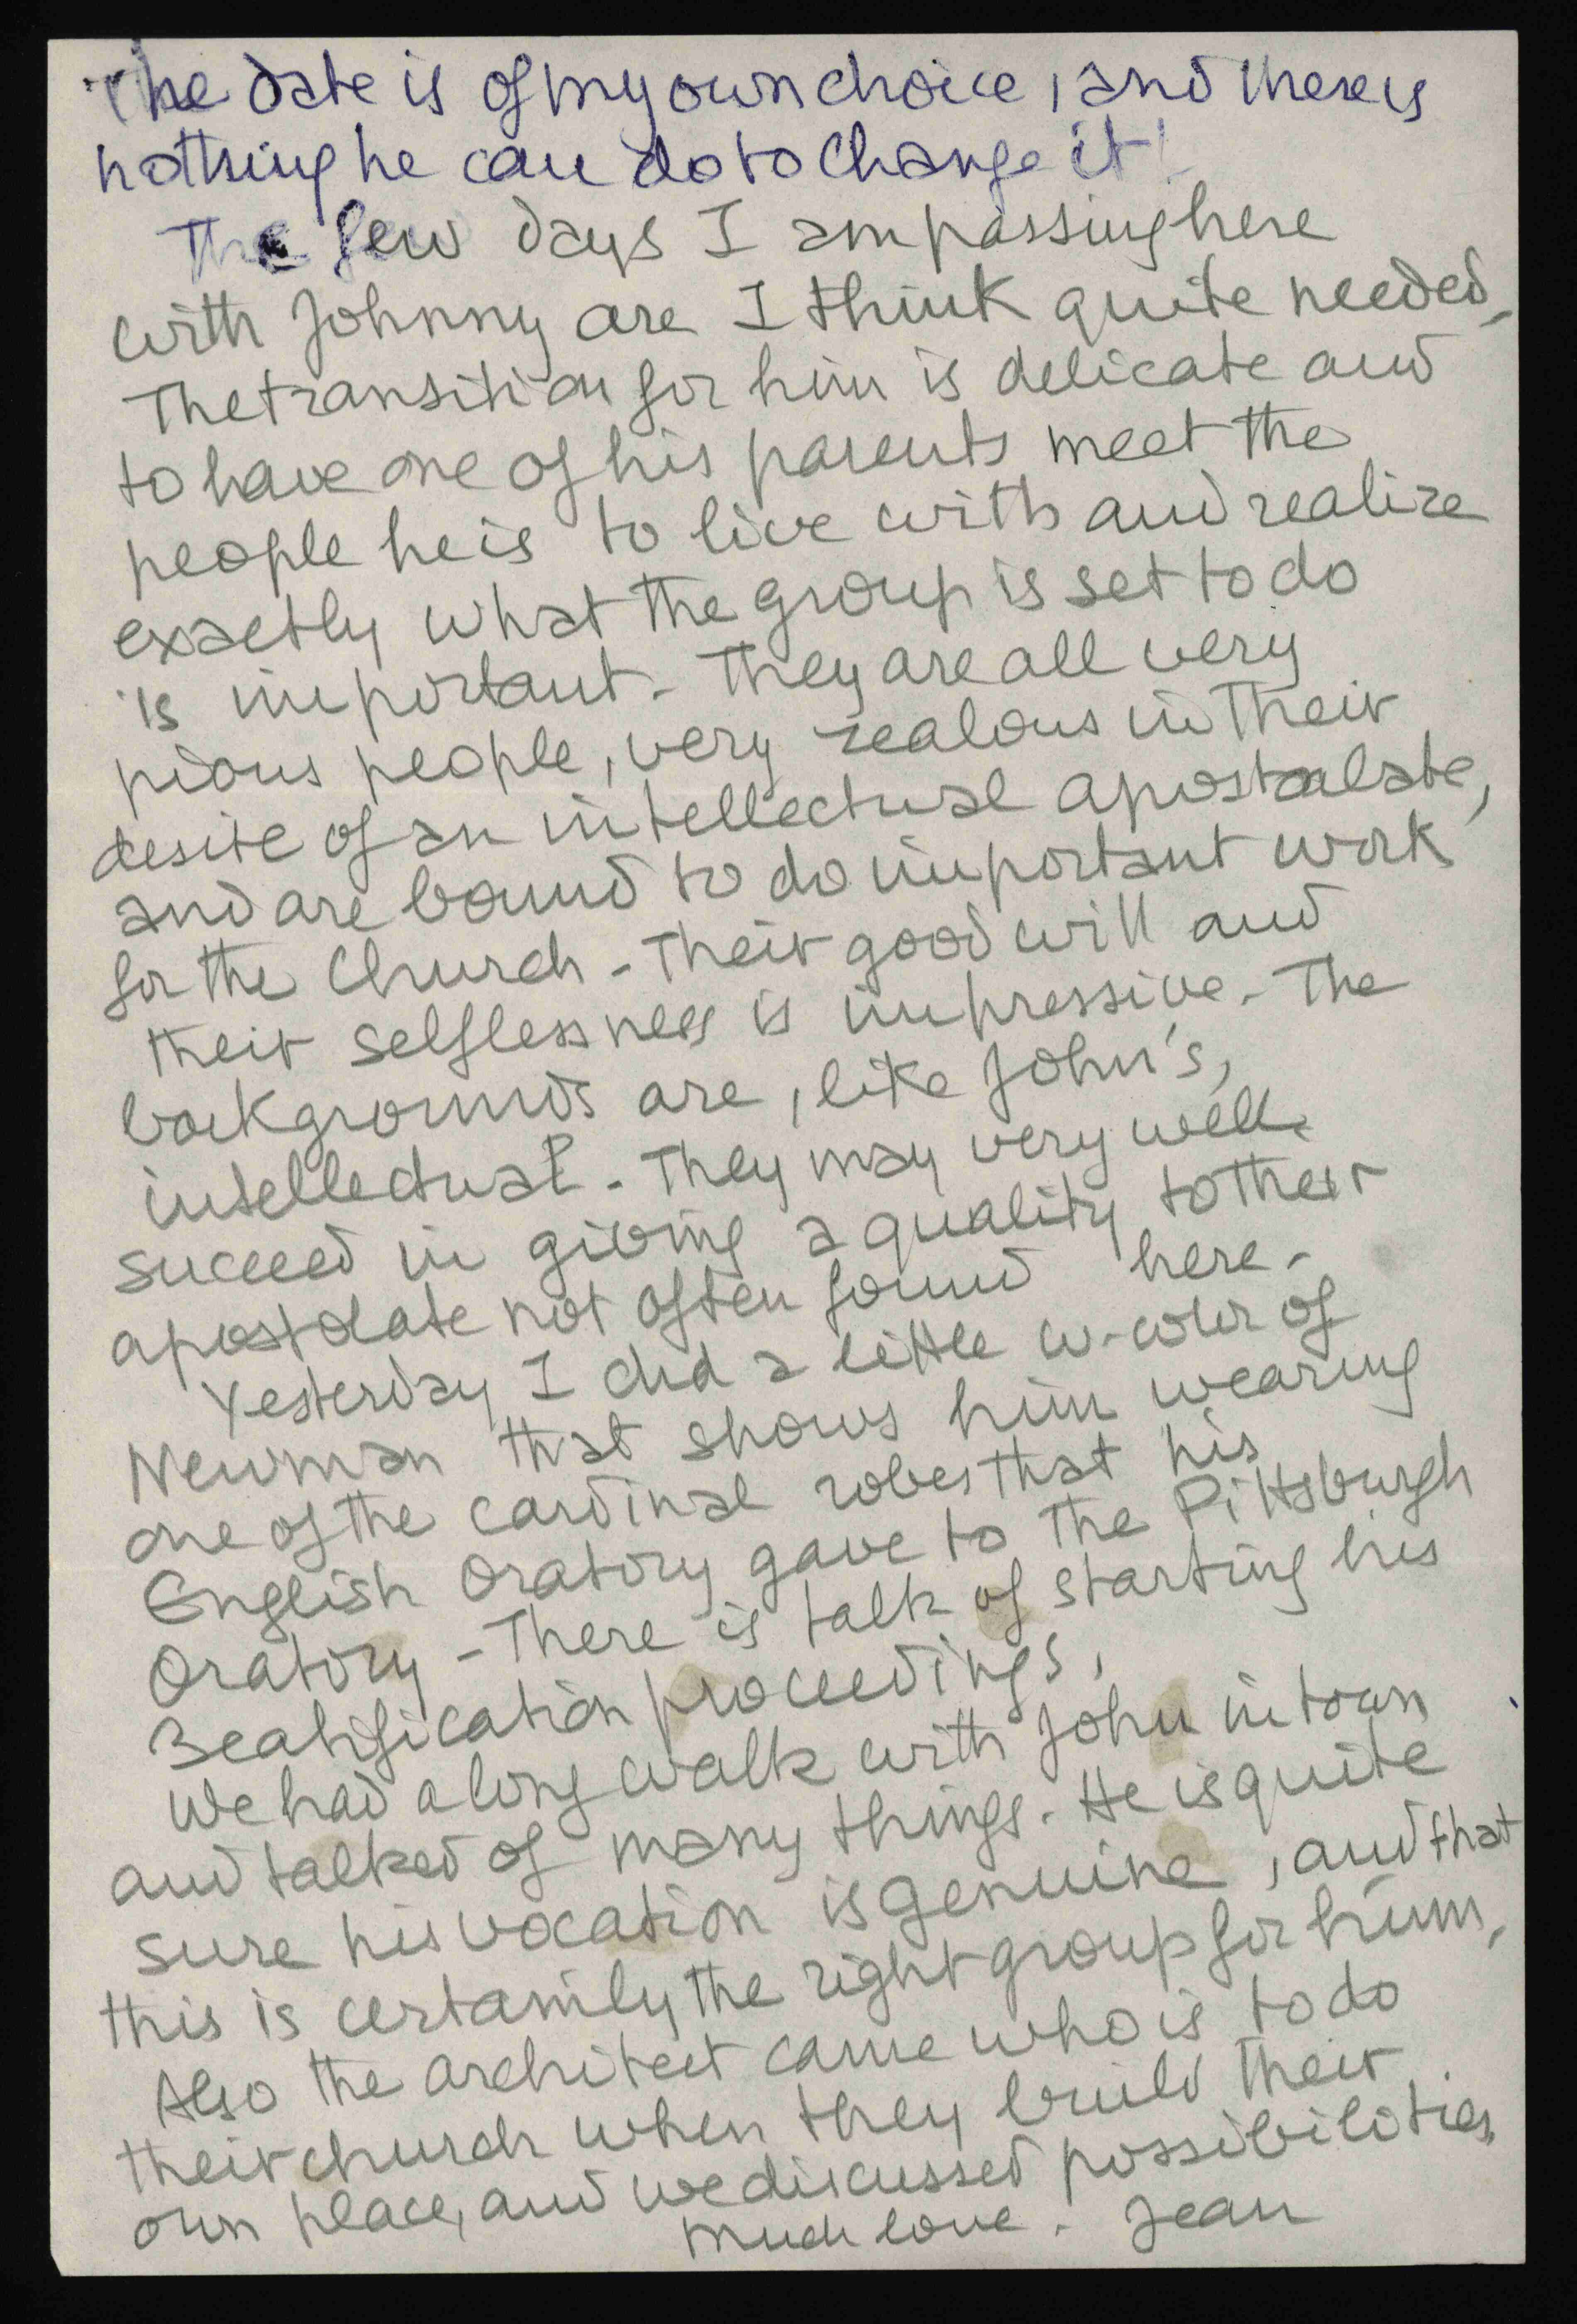 The date is of my own choice, and there is
nothing he can do to change it!
The few days I am passing here
with Johnny are I think quite needed.
The transition for him is delicate and
to have one of his parents meet the
people he is to live with and realize
exactly what the group is set to do
is important. They are all very
pious people, very zealous in their
desire of an intellectual apostolate,
and are bound to do important work
for the Church - Their good will and
their selflessness is impressive. The
backgrounds are, like John's,
intellectual - They may very well
succeed in giving a quality to their
apostolate not often found here.
Yesterday I did a little w-color of
Newman that shows him wearing
one of the cardinal robes that his
English Oratory gave to the Pittsburgh
Oratory - There is talk of starting his
Beatification proceedings,
We had a long walk with John in town
and talked of many things. He is quite
sure his vocation is genuine, and that
this is certainly the right group for him,
Also the architect came who is to do
their church when they build their
own place, and we discussed possibilities.
Much love. Jean